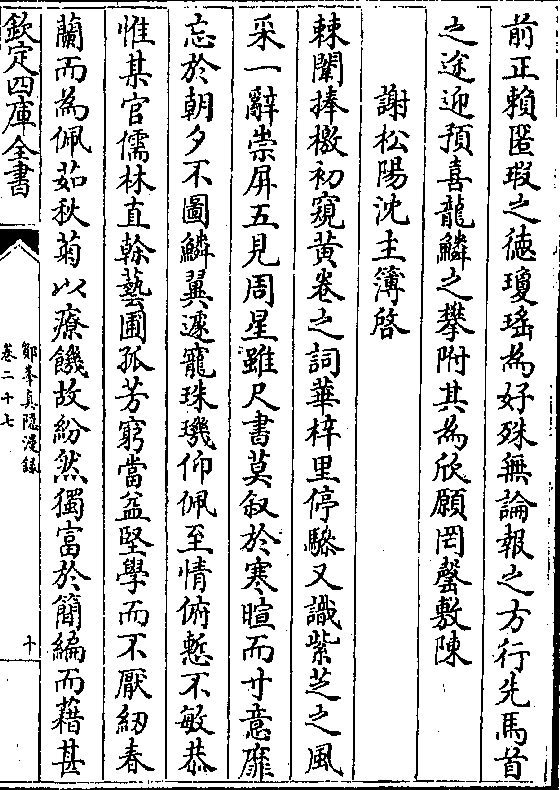 前正賴匿瑕之徳瓊瑶為好殊無論報之方行先馬首
之途迎預喜龍鱗之攀附其為欣願罔罄敷陳
謝松陽沈主簿啓
棘闈捧檄初窺黃卷之詞華梓里停驂又識紫芝之風
采一辭崇屏五見周星雖尺書莫叙於寒暄而寸意靡
忘於朝夕不圖鱗翼遽寵珠璣仰佩至情俯慙不敏恭
惟某官儒林直榦藝圃孤芳窮當益堅學而不厭紉春
蘭而為佩茹秋菊以療饑故紛然獨富於簡編而藉甚
欽定四庫全書
鄮峯真隱漫録
卷二十七
十